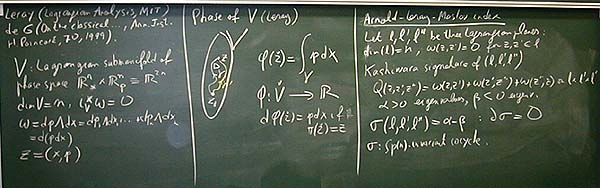 Leray (Lagrangian Analysis, MIT)
de G (On the classical..., Ann. Inst.
H Poincaré, 70, 1999).
V: Lagrangian submanifold of
phase space ℝⁿₓ × ℝⁿₚ ≡ ℝ²ⁿ
dim V = n, ι*ᵥω = 0
ω = dp∧dx = dp₁∧dx₁ ... dpₙ∧dxₙ
= d(pdx)
z = (x, p)
Phase of V (Leray)
φ(ž) = ∫ᵧ pdx
φ: V̌ → ℝ
dφ(ž) = pdx if
π(ž) = z
Arnold-Leray-Maslov index
Let l, l', l'' be three Lagrangian planes:
dim(l) = n, ω(z, z') = 0 for z, z' ∈ l
Kashiwara signature of (l, l', l'')
Q(z, z', z'') = ω(z, z') + ω(z', z'') + ω(z'', z) on l×l'×l''
α > 0 eigenvalues, β < 0 eigenv.
σ(l, l', l'') = α - β : ∂σ = 0
σ: Sp(n)-invariant cocycle.